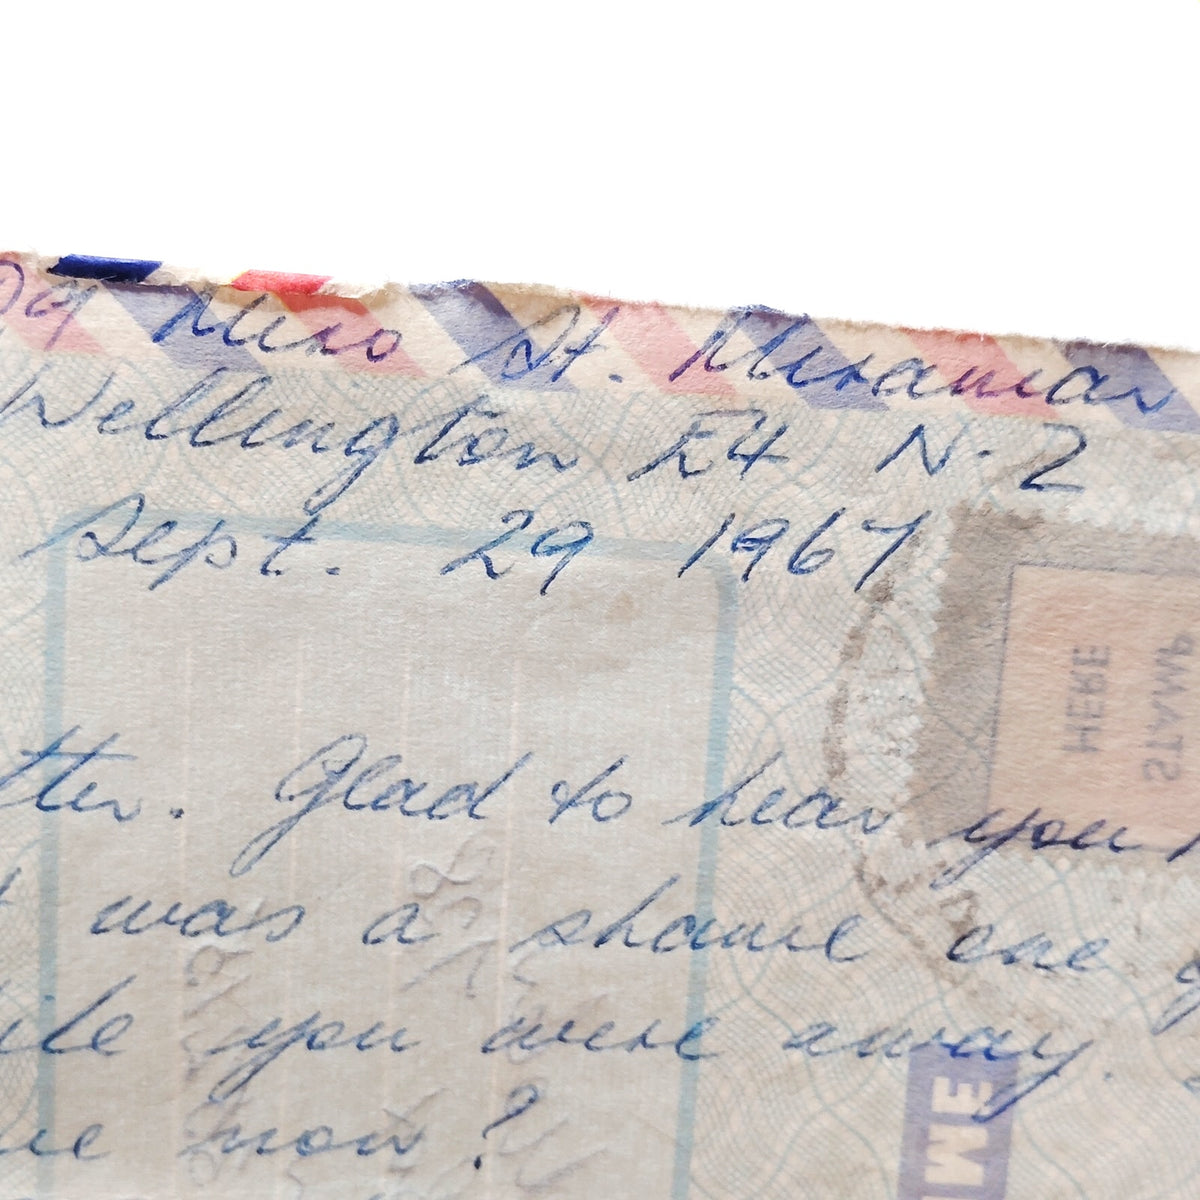 Miro St. Miramar
Wellington E4 N.Z
Sept. 29 1967
tter. Glad to hear you
was a shame one
ile you were away.
ue now?
STAMP
HERE